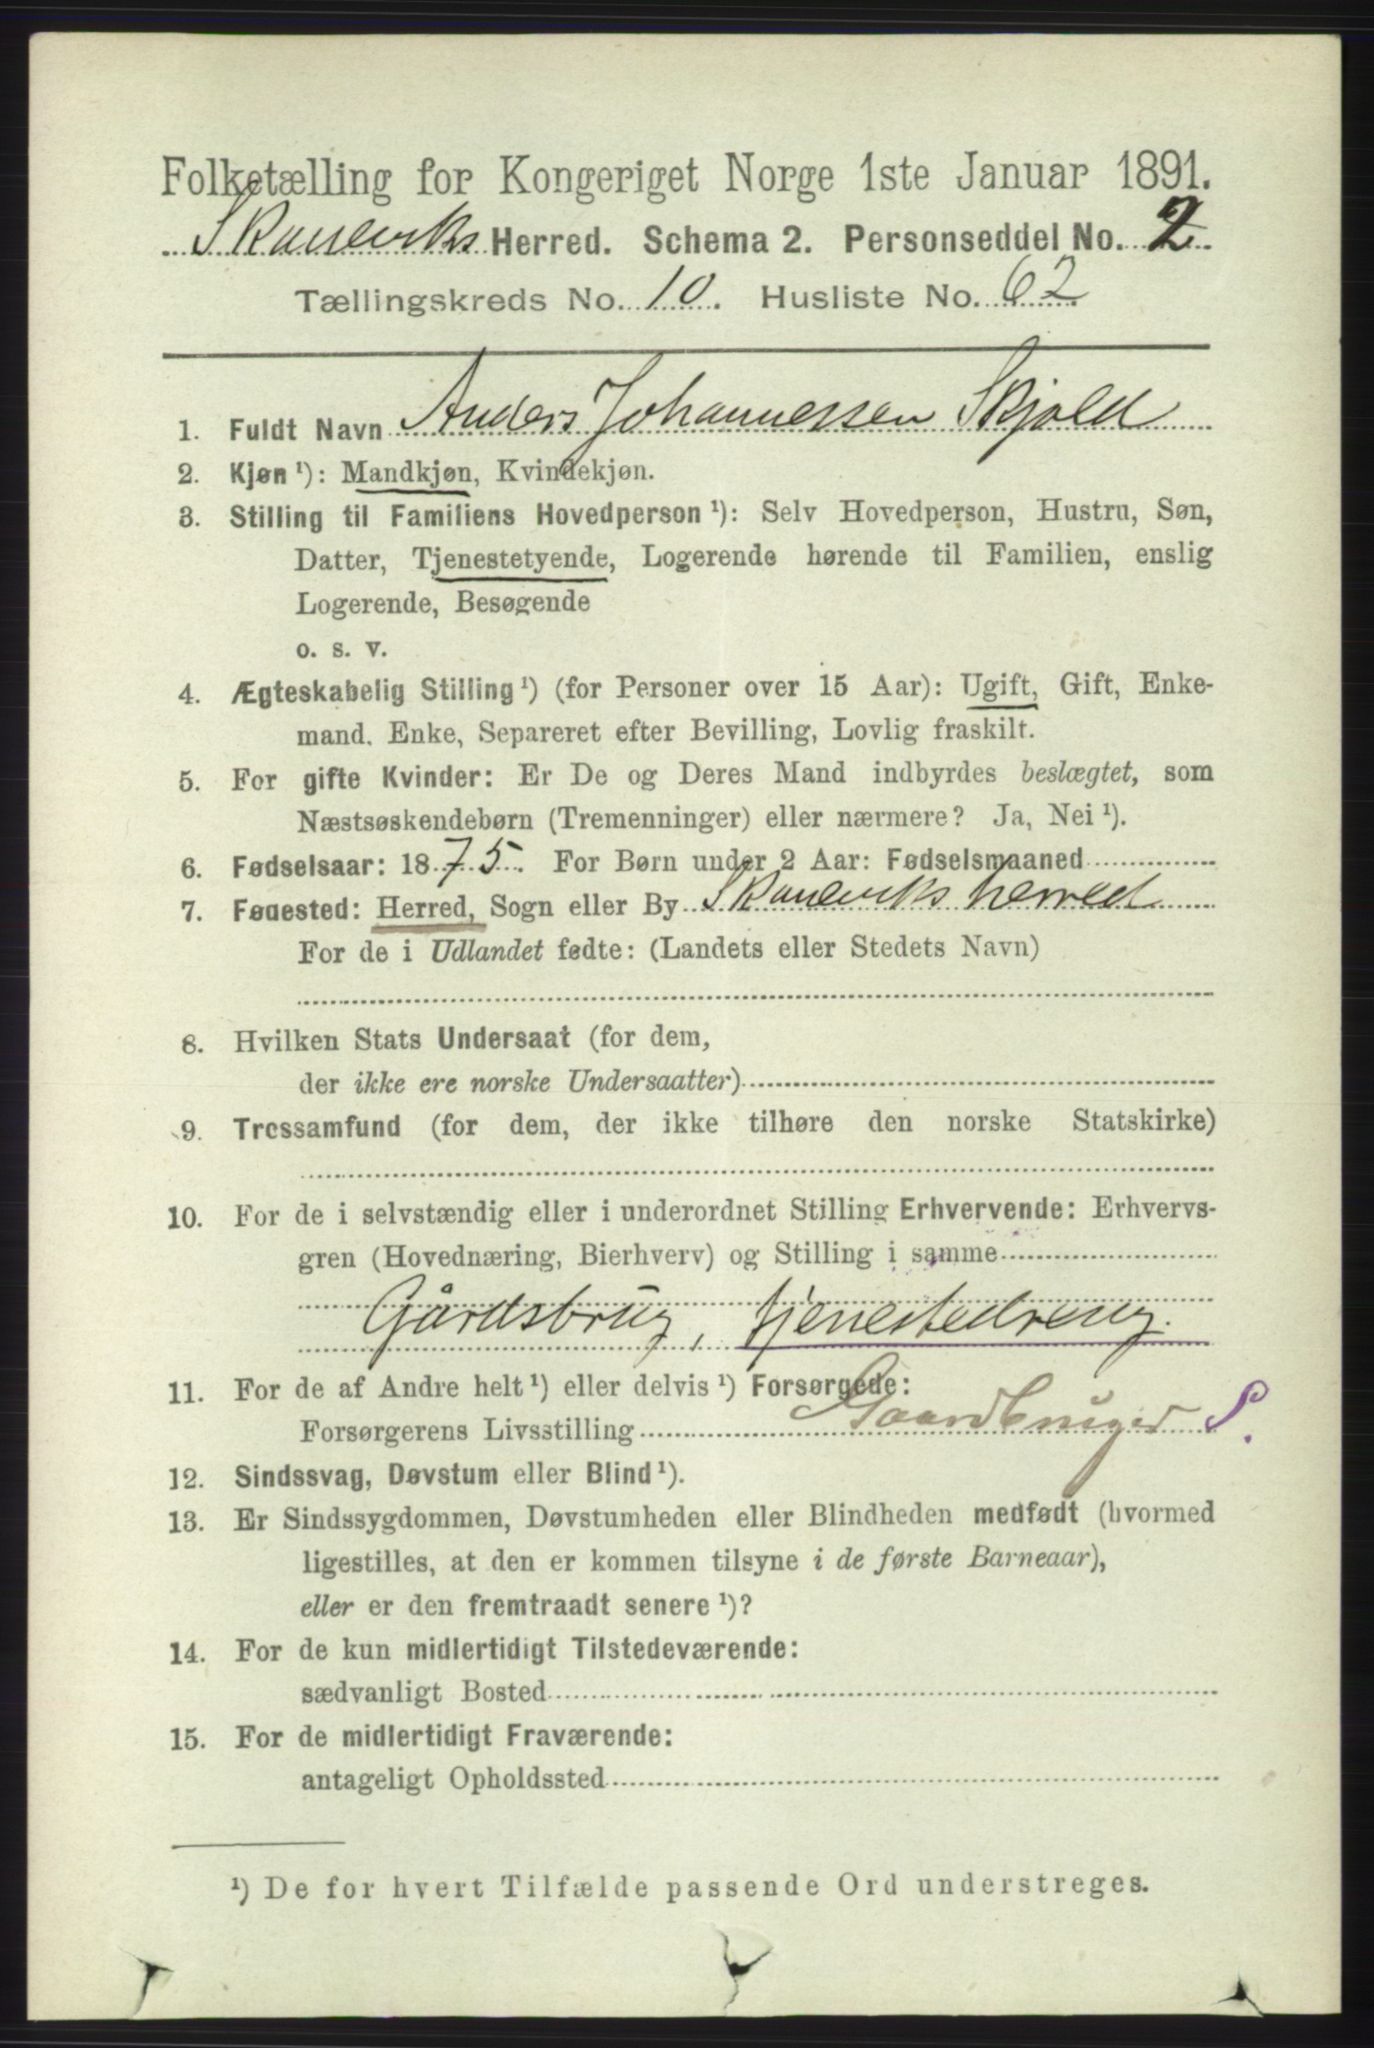 Folketælling for Kongeriget Norge 1ste Januar 1891.
Skaneviks Herred. Schema 2. Personseddel No. 2
Tællingskreds No. 10. Husliste No. 62
1. Fuldt Navn Anders Johannessen Skjold
2. Kjøn ¹): Mandkjøn, Kvindekjøn.
3. Stilling til Familiens Hovedperson ¹): Selv Hovedperson, Hustru, Søn,
Datter, Tjenestetyende, Logerende hørende til Familien, enslig
Logerende, Besøgende
o. s. v.
4. Ægteskabelig Stilling ¹) (for Personer over 15 Aar): Ugift, Gift, Enke-
mand, Enke, Separeret efter Bevilling, Lovlig fraskilt.
5. For gifte Kvinder: Er De og Deres Mand indbyrdes beslægtet, som
Næstsøskendebørn (Tremenninger) eller nærmere? Ja, Nei ¹).
6. Fødselsaar: 1875. For Børn under 2 Aar: Fødselsmaaned
7. Føuested: Herred, Sogn eller By Skaneviks herred
For de i Udlandet fødte: (Landets eller Stedets Navn)
8. Hvilken Stats Undersaat (for dem,
der ikke ere norske Undersaatter)
9. Trossamfund (for dem, der ikke tilhøre den norske Statskirke)
10. For de i selvstændig eller i underordnet Stilling Erhvervende: Erhvervs-
gren (Hovednæring, Bierhverv) og Stilling i samme
Gårdsbrug, tjenestedreng.
11. For de af Andre helt ¹) eller delvis ¹) Forsørgede:
Forsørgerens Livsstilling Gaardbruger S.
12. Sindssvag, Døvstum eller Blind ¹).
13. Er Sindssygdommen, Døvstumheden eller Blindheden medfødt (hvormed
ligestilles, at den er kommen tilsyne i de første Barneaar),
eller er den fremtraadt senere ¹)?
14. For de kun midlertidigt Tilstedeværende:
sædvanligt Bosted
15. For de midlertidigt Fraværende:
antageligt Opholdssted
¹) De for hvert Tilfælde passende Ord understreges.